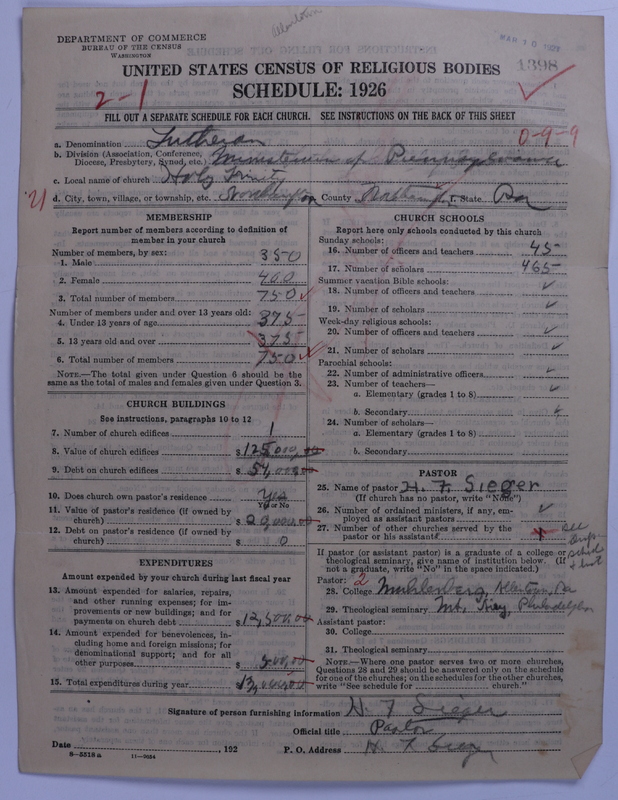 Allentown
DEPARTMENT OF COMMERCE
BUREAU OF THE CENSUS
WASHINGTON
1398
UNITED STATES CENSUS OF RELIGIOUS BODIES
SCHEDULE: 1926
2-1
FILL OUT A SEPARATE SCHEDULE FOR EACH CHURCH. SEE INSTRUCTIONS ON THE BACK OF THIS SHEET
0-9-9
a. Denomination Lutheran
b. Division (Association, Conference, Diocese, Presbytery, Synod, etc.) Ministerium of Pennsylvania
c. Local name of church Holy Trinity
21 d. City, town, village, or township, etc. Northampton County Northampton f. State Pa
MEMBERSHIP
Report number of members according to definition of
member in your church
Number of members, by sex:
1. Male 350
2. Female 400
3. Total number of members 750
Number of members under and over 13 years old:
4. Under 13 years of age 375
5. 13 years old and over 375
6. Total number of members 750
NOTE.—The total given under Question 6 should be the
same as the total of males and females given under Question 3.
CHURCH BUILDINGS
See instructions, paragraphs 10 to 12
7. Number of church edifices 1
8. Value of church edifices $ 125,000.00
9. Debt on church edifices $ 54,000
10. Does church own pastor's residence Yes
Yes or No
11. Value of pastor's residence (if owned by
church) $ 20,000.00
12. Debt on pastor's residence (if owned by
church) $ 0
EXPENDITURES
Amount expended by your church during last fiscal year
13. Amount expended for salaries, repairs,
and other running expenses; for im-
provements or new buildings; and for
payments on church debt $ 12,500.00
14. Amount expended for benevolences, in-
cluding home and foreign missions; for
denominational support; and for all
other purposes $ 500.00
15. Total expenditures during year $ 13,000.00
CHURCH SCHOOLS
Report here only schools conducted by this church
Sunday schools:
16. Number of officers and teachers 45
17. Number of scholars 465
Summer vacation Bible schools:
18. Number of officers and teachers ✓
19. Number of scholars ✓
Week-day religious schools:
20. Number of officers and teachers ✓
21. Number of scholars ✓
Parochial schools:
22. Number of administrative officers ✓
23. Number of teachers—
a. Elementary (grades 1 to 8) ✓
b. Secondary ✓
24. Number of scholars—
a. Elementary (grades 1 to 8)
b. Secondary
PASTOR
25. Name of pastor H. F. Sieger
(If church has no pastor, write "None")
26. Number of ordained ministers, if any, em-
ployed as assistant pastors ✓
27. Number of other churches served by the
pastor or his assistant
See
If pastor (or assistant pastor) is a graduate of a college or
theological seminary, give name of institution below. (If
not a graduate, write "No" in the space indicated.)
Pastor: 2
28. College Muhlenberg, Allentown, Pa
29. Theological seminary Mt. Airy, Philadelphia
Assistant pastor:
30. College
31. Theological seminary
NOTE.—Where one pastor serves two or more churches,
Questions 28 and 29 should be answered only on the schedule
for one of the churches; on the schedules for the other churches,
write "See schedule for church."
Signature of person furnishing information H F Sieger
Official title Pastor
Date , 192 P. O. Address H F Sieger
8—5518a 11—9034